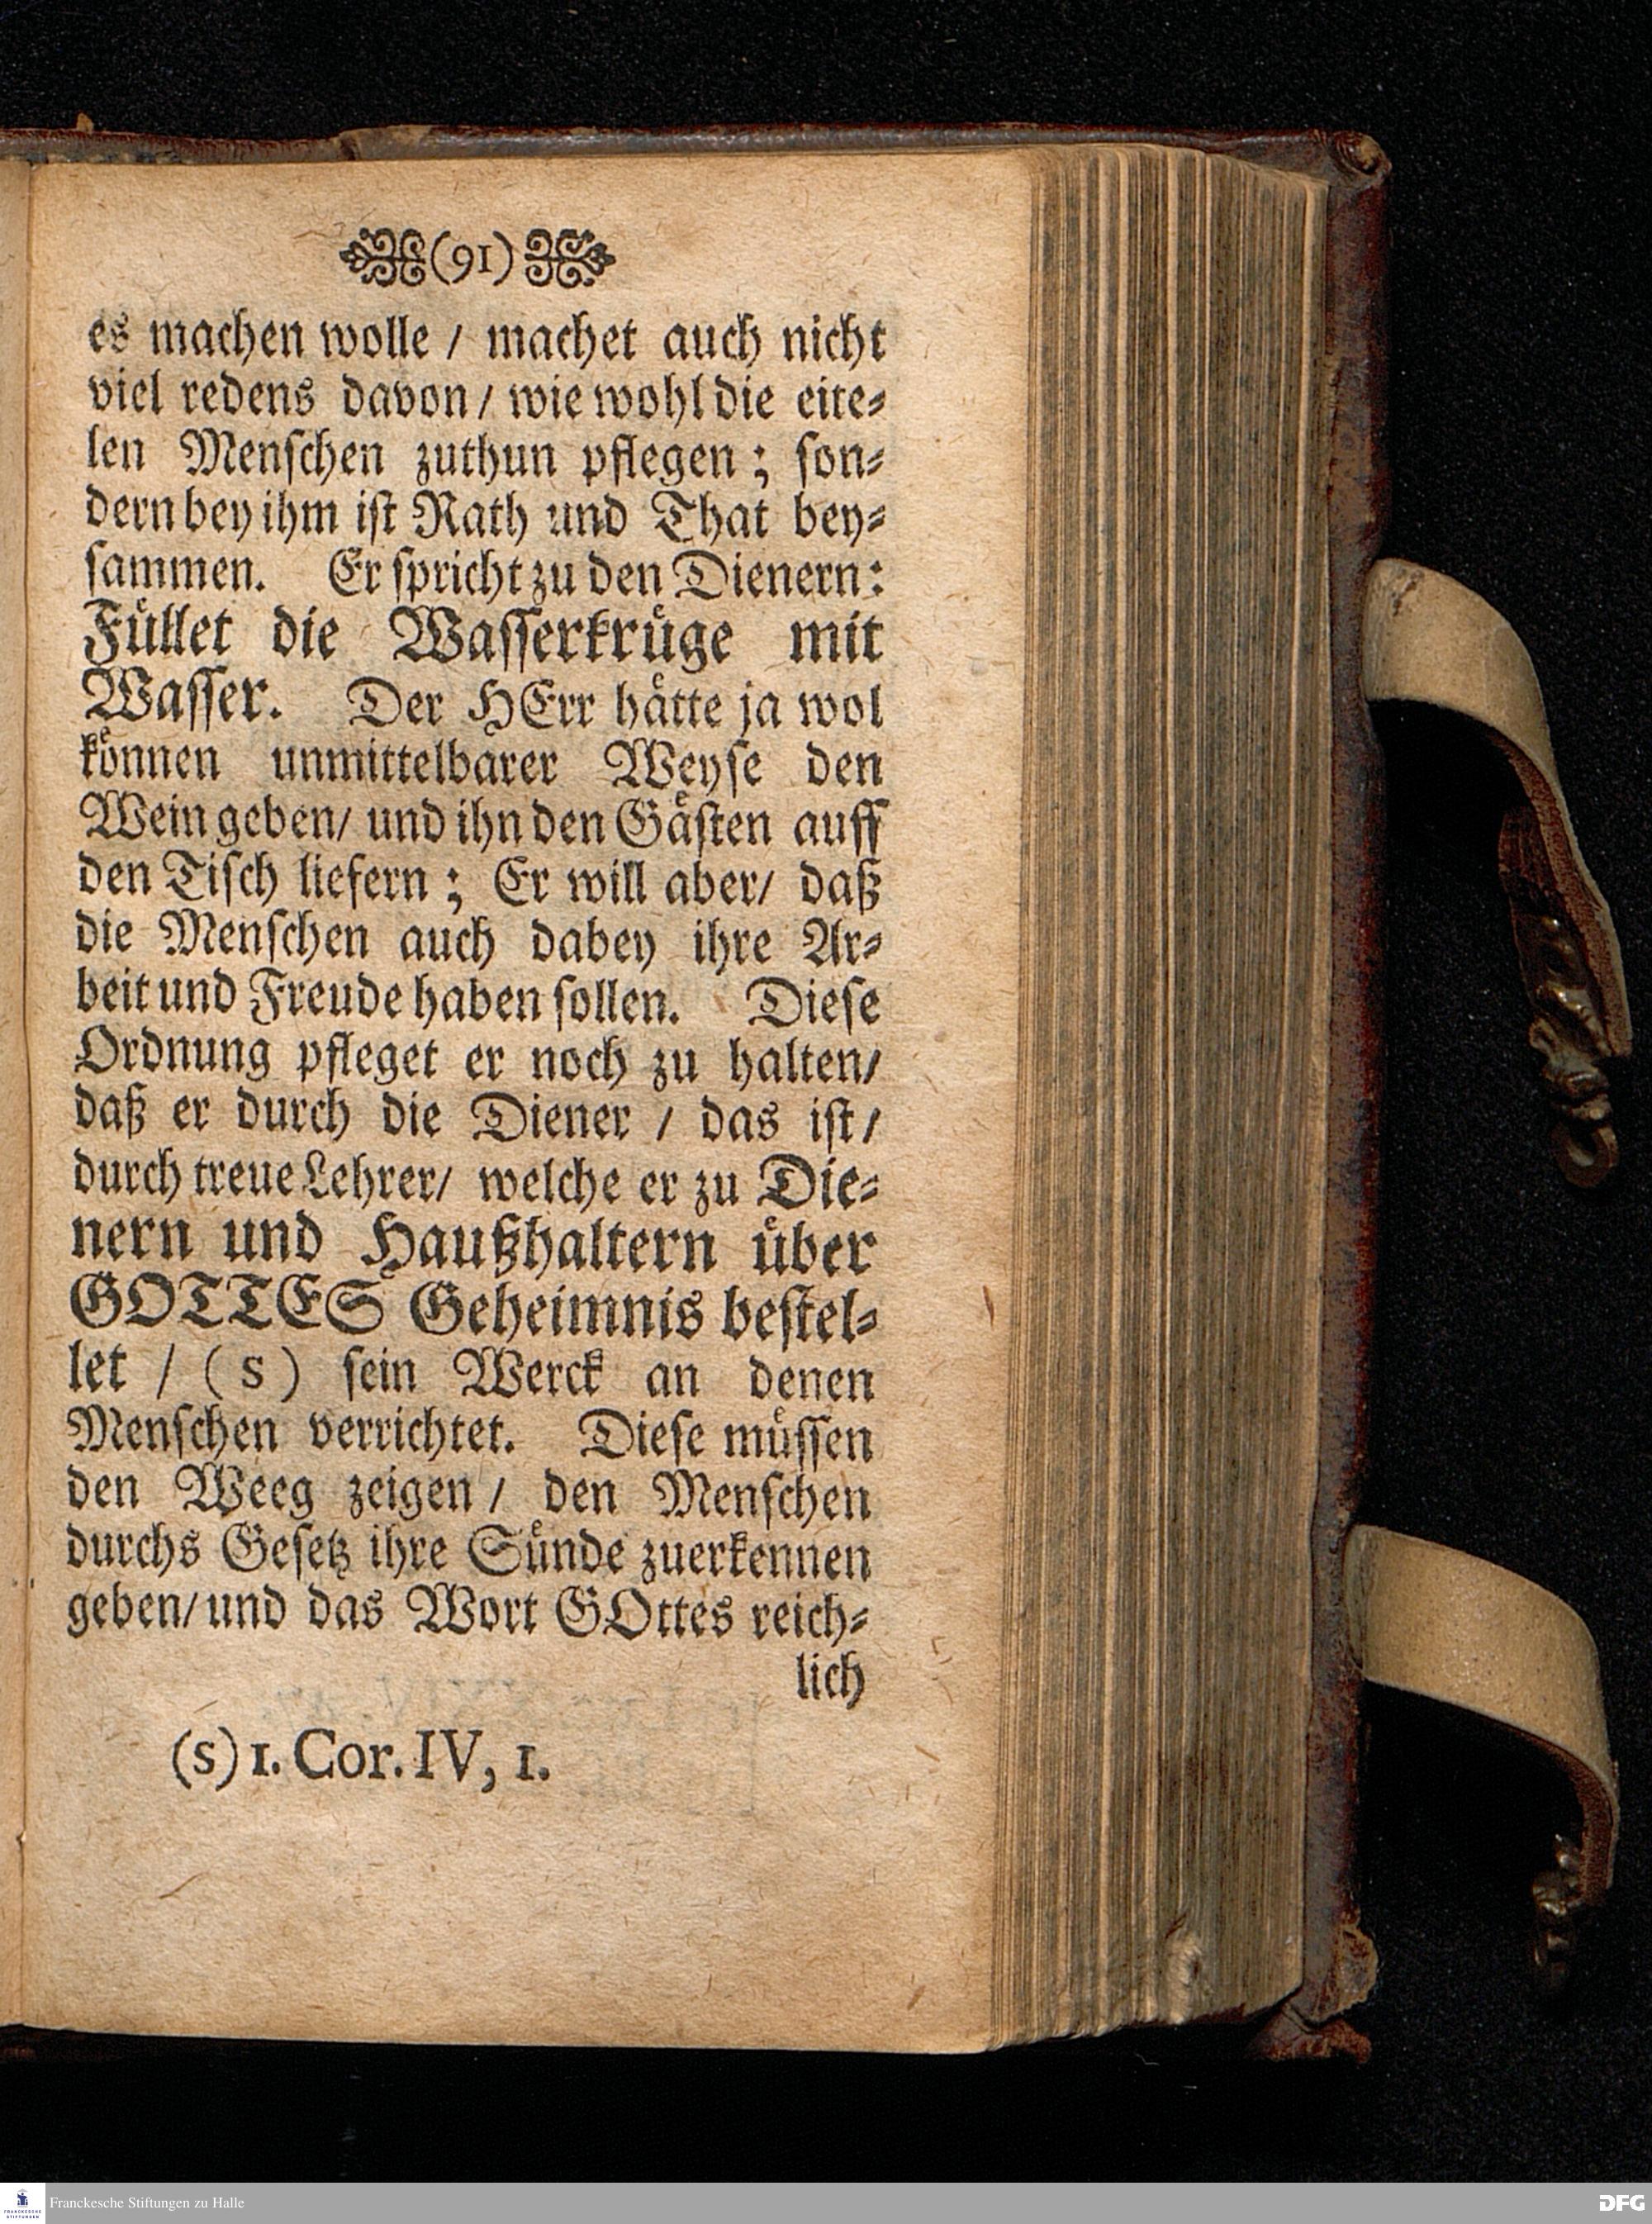 (91)
es machen wolle / machet auch nicht
viel redens davon / wie wohl die eite⸗
len Menschen zuthun pflegen ; son⸗
dern bey ihm ist Rath und That bey⸗
sammen. Er spricht zu den Dienern:
Füllet die Wasserkrüge mit
Wasser. Der HErr hätte ja wol
können unmittelbarer Weyse den
Wein geben / und ihn den Gästen auff
den Tisch liefern ; Er will aber / daß
die Menschen auch dabey ihre Ar⸗
beit und Freude haben sollen. Diese
Ordnung pfleget er noch zu halten /
daß er durch die Diener / das ist /
durch treue Lehrer / welche er zu Die⸗
nern und Haußhaltern über
GOTTES Geheimnis bestel⸗
let / (s) sein Werck an denen
Menschen verrichtet. Diese müssen
den Weeg zeigen / den Menschen
durchs Gesetz ihre Sünde zuerkennen
geben / und das Wort GOttes reich⸗
lich
(s) 1. Cor. IV, 1.
FRANCKESCHE STIFTUNGEN
Franckesche Stiftungen zu Halle
DFG